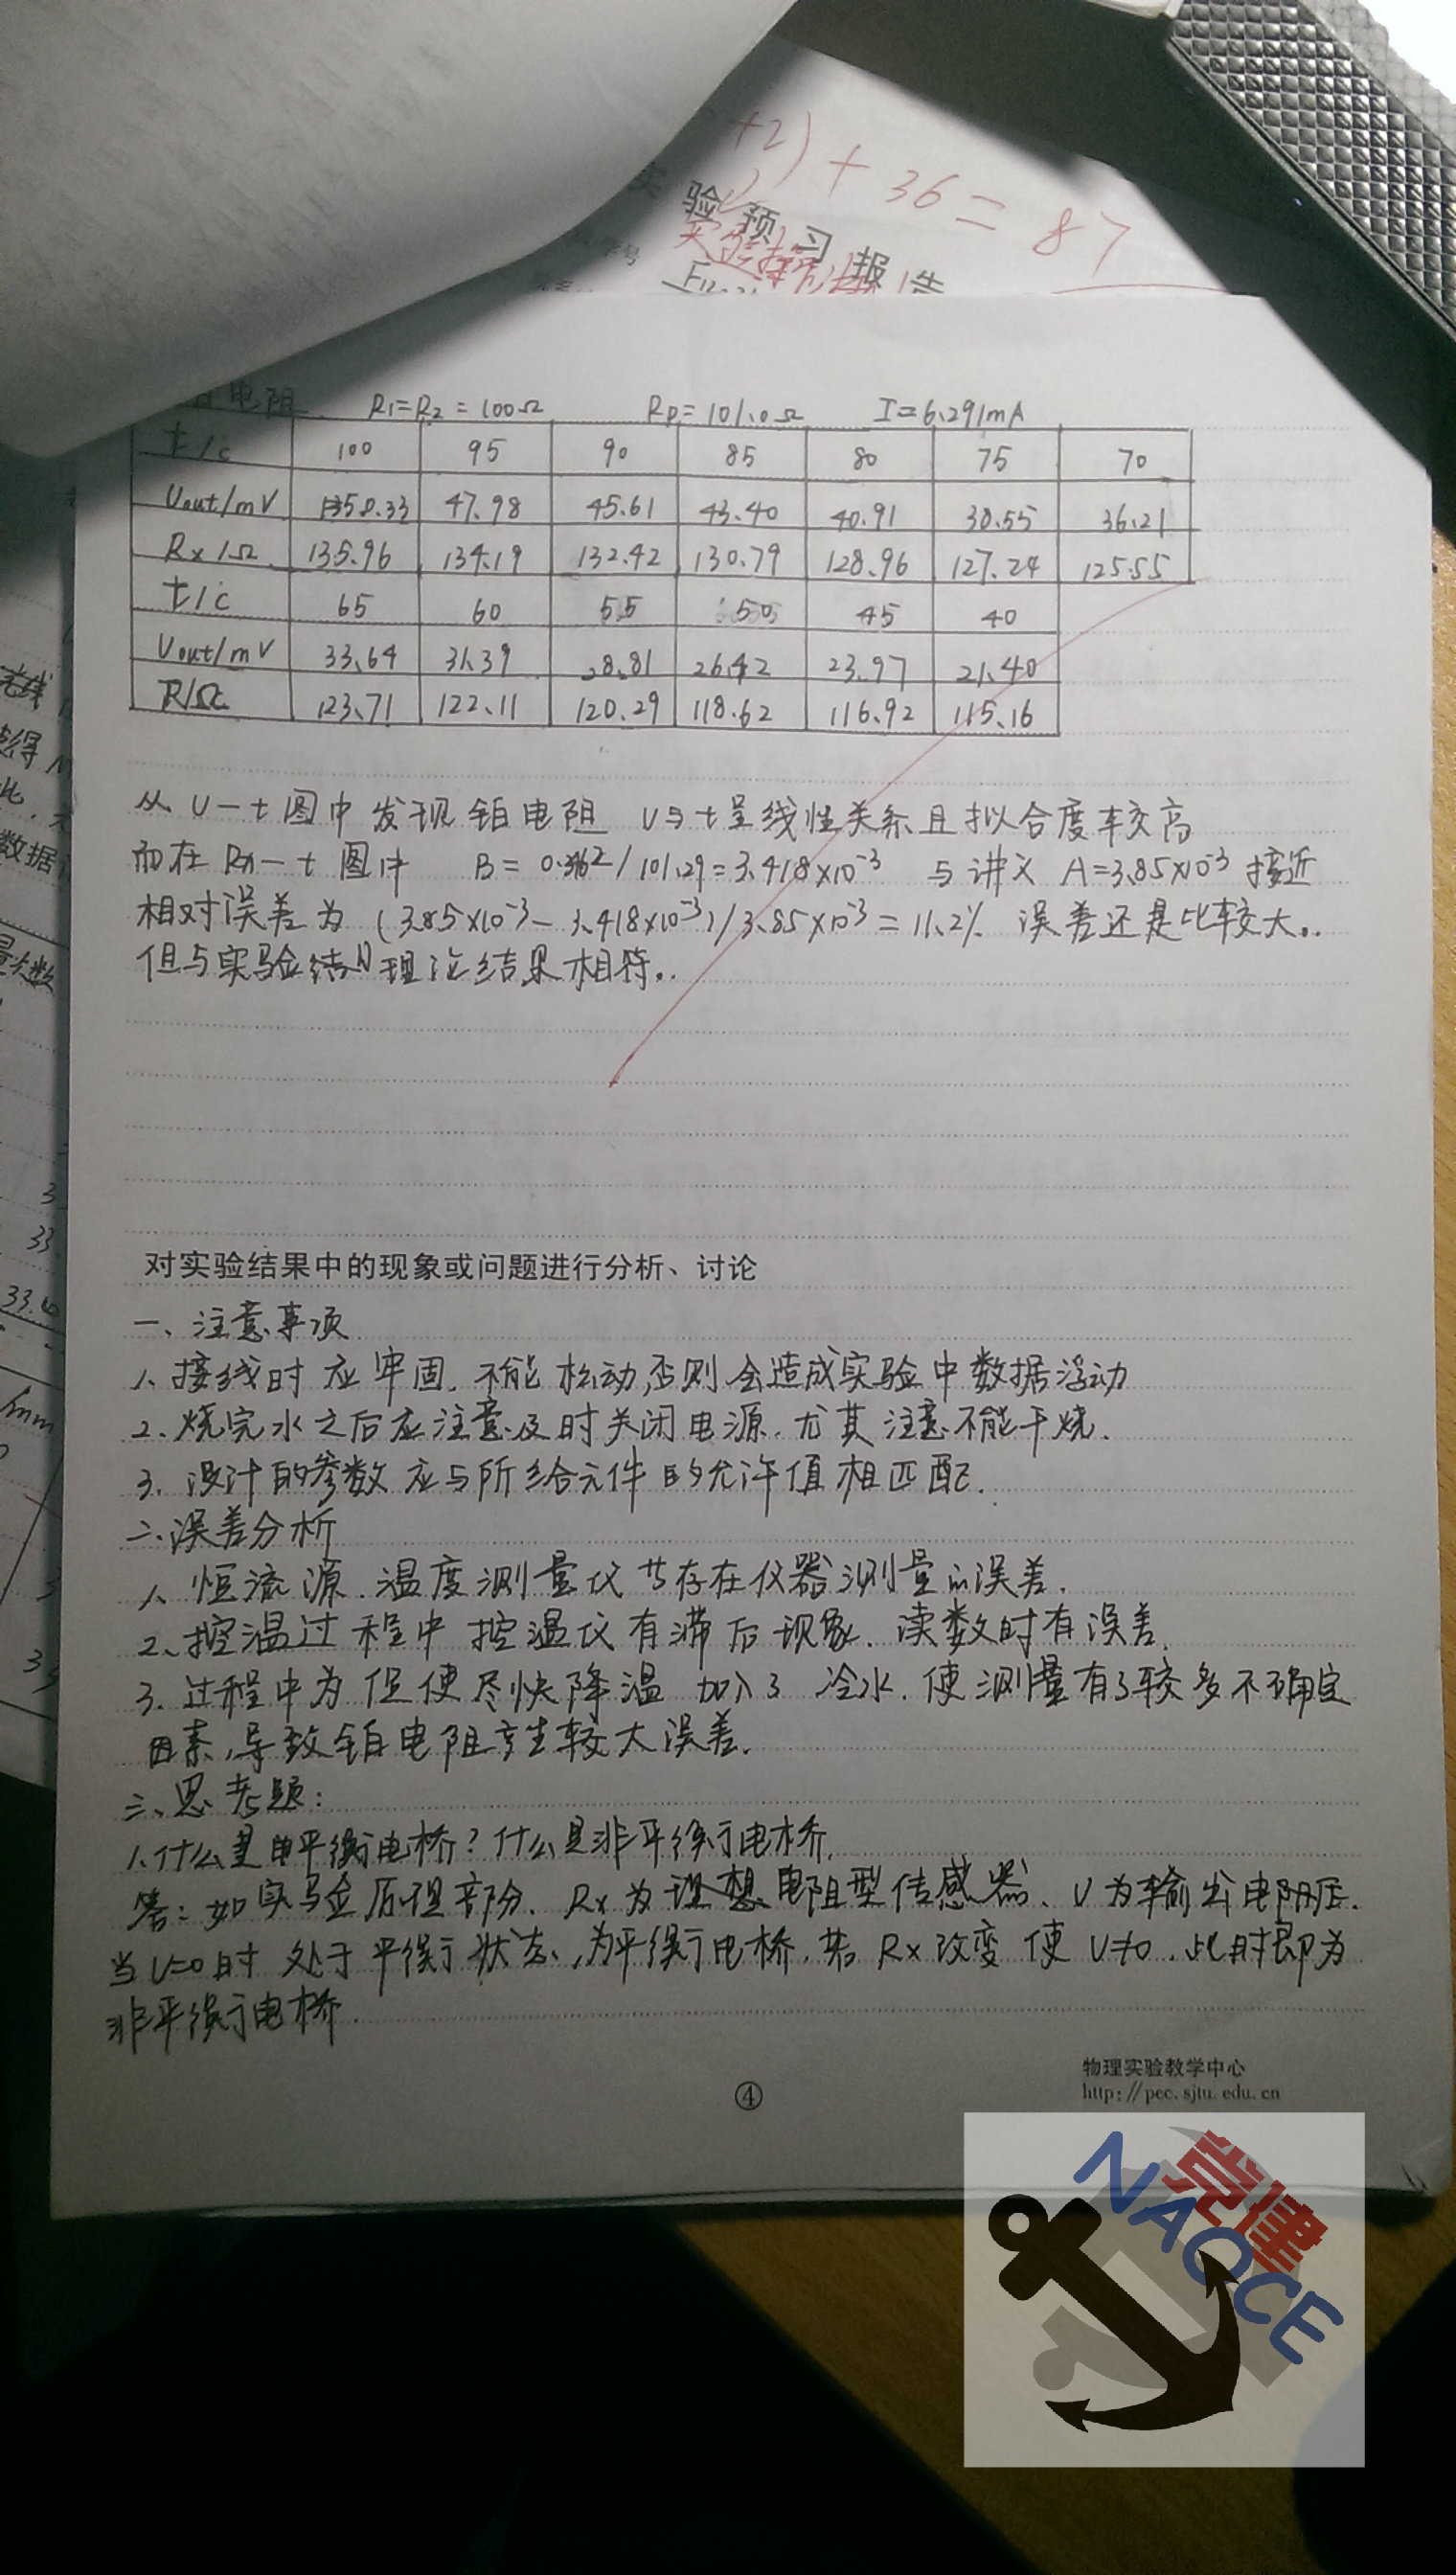 +2) + 36 = 87
实验预习报告
电阻 R₁=R₂=100Ω Rp=101.0Ω I=6.291mA
t/c 100 95 90 85 80 75 70
Uout/mV 50.33 47.98 45.61 43.40 40.91 38.55 36.21
Rx/Ω 135.96 134.19 132.42 130.79 128.96 127.24 125.55
t/c 65 60 55 50 45 40
Uout/mV 33.64 31.39 28.81 26.42 23.97 21.40
R/Ω 123.71 122.11 120.29 118.62 116.92 115.16
从U-t图中发现铂电阻 U与t呈线性关系且拟合度较高
而在Rx-t图中 B=0.3462/101.29=3.418×10⁻³ 与讲义A=3.85×10⁻³接近
相对误差为(3.85×10⁻³-3.418×10⁻³)/3.85×10⁻³=11.2% 误差还是比较大。
但与实验结理论结果相符。
对实验结果中的现象或问题进行分析、讨论
一、注意事项
1、接线时应牢固.不能松动,否则会造成实验中数据浮动
2、烧完水之后应注意及时关闭电源.尤其注意不能干烧.
3、设计的参数应与所给元件的允许值相匹配.
二、误差分析
1、恒流源.温度测量仪芐存在仪器测量的误差.
2、控温过程中控温仪有滞后现象.读数时有误差.
3、过程中为促使尽快降温加入了冷水.使测量有了较多不确定
因素,导致铂电阻产生较大误差.
三、思考题:
1、什么是平衡电桥?什么是非平衡电桥.
答:如实验原理部分.Rx为理想电阻型传感器、U为输出电压.
当U=0时处于平衡状态,为平衡电桥.若Rx改变使U≠0.此时即为
非平衡电桥.
④
物理实验教学中心
http://pec.sjtu.edu.cn
党建
NAOCE